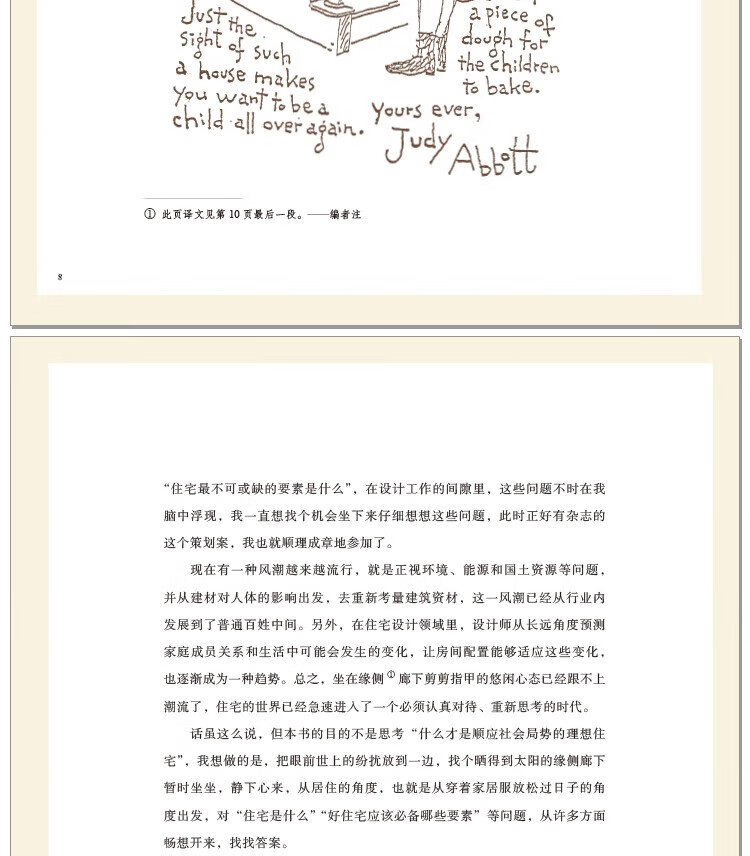 Just the
sight of such
a house makes
you want to be a
child all over again.
a piece of
dough for
the children
to bake.
Yours ever,
Judy Abbott
① 此页译文见第 10 页最后一段。——编者注
8
“住宅最不可或缺的要素是什么”，在设计工作的间隙里，这些问题不时在我
脑中浮现，我一直想找个机会坐下来仔细想想这些问题，此时正好有杂志的
这个策划案，我也就顺理成章地参加了。
现在有一种风潮越来越流行，就是正视环境、能源和国土资源等问题，
并从建材对人体的影响出发，去重新考量建筑资材，这一风潮已经从行业内
发展到了普通百姓中间。另外，在住宅设计领域里，设计师从长远角度预测
家庭成员关系和生活中可能会发生的变化，让房间配置能够适应这些变化，
也逐渐成为一种趋势。总之，坐在缘侧①廊下剪剪指甲的悠闲心态已经跟不上
潮流了，住宅的世界已经急速进入了一个必须认真对待、重新思考的时代。
话虽这么说，但本书的目的不是思考“什么才是顺应社会局势的理想住
宅”，我想做的是，把眼前世上的纷扰放到一边，找个晒得到太阳的缘侧廊下
暂时坐坐，静下心来，从居住的角度，也就是从穿着家居服放松过日子的角
度出发，对“住宅是什么”“好住宅应该必备哪些要素”等问题，从许多方面
畅想开来，找找答案。